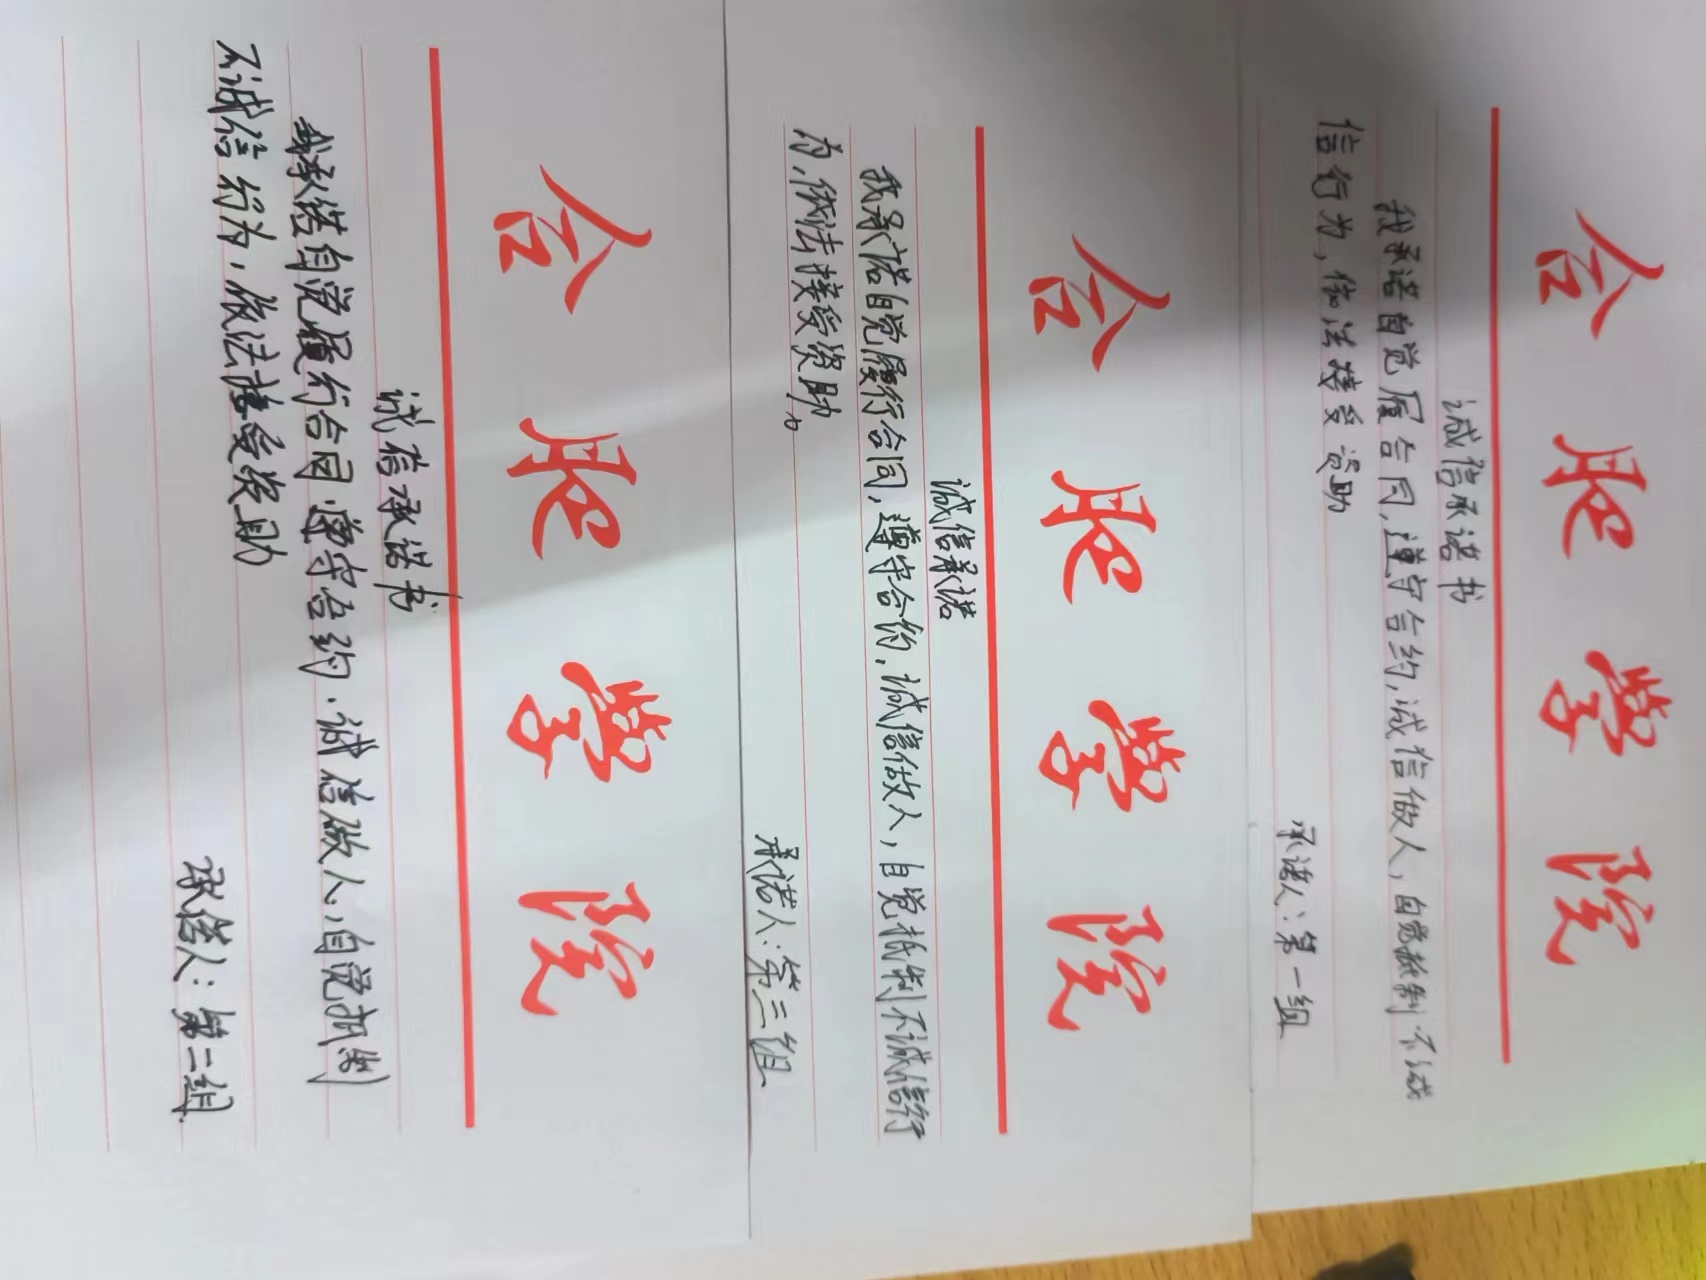 合肥学院
诚信承诺书
我承诺自觉履合同,遵守合约,诚信做人,自觉抵制不诚
信行为,依法接受资助
承诺人:第一组
合肥学院
诚信承诺
我承诺自觉履行合同,遵守合约,诚信做人,自觉抵制不诚信行
为,依法接受资助。
承诺人:第三组
合肥学院
诚信承诺书
我承诺自觉履行合同,遵守合约,诚信做人,自觉抵制
不诚信行为,依法接受资助
承诺人:第二组